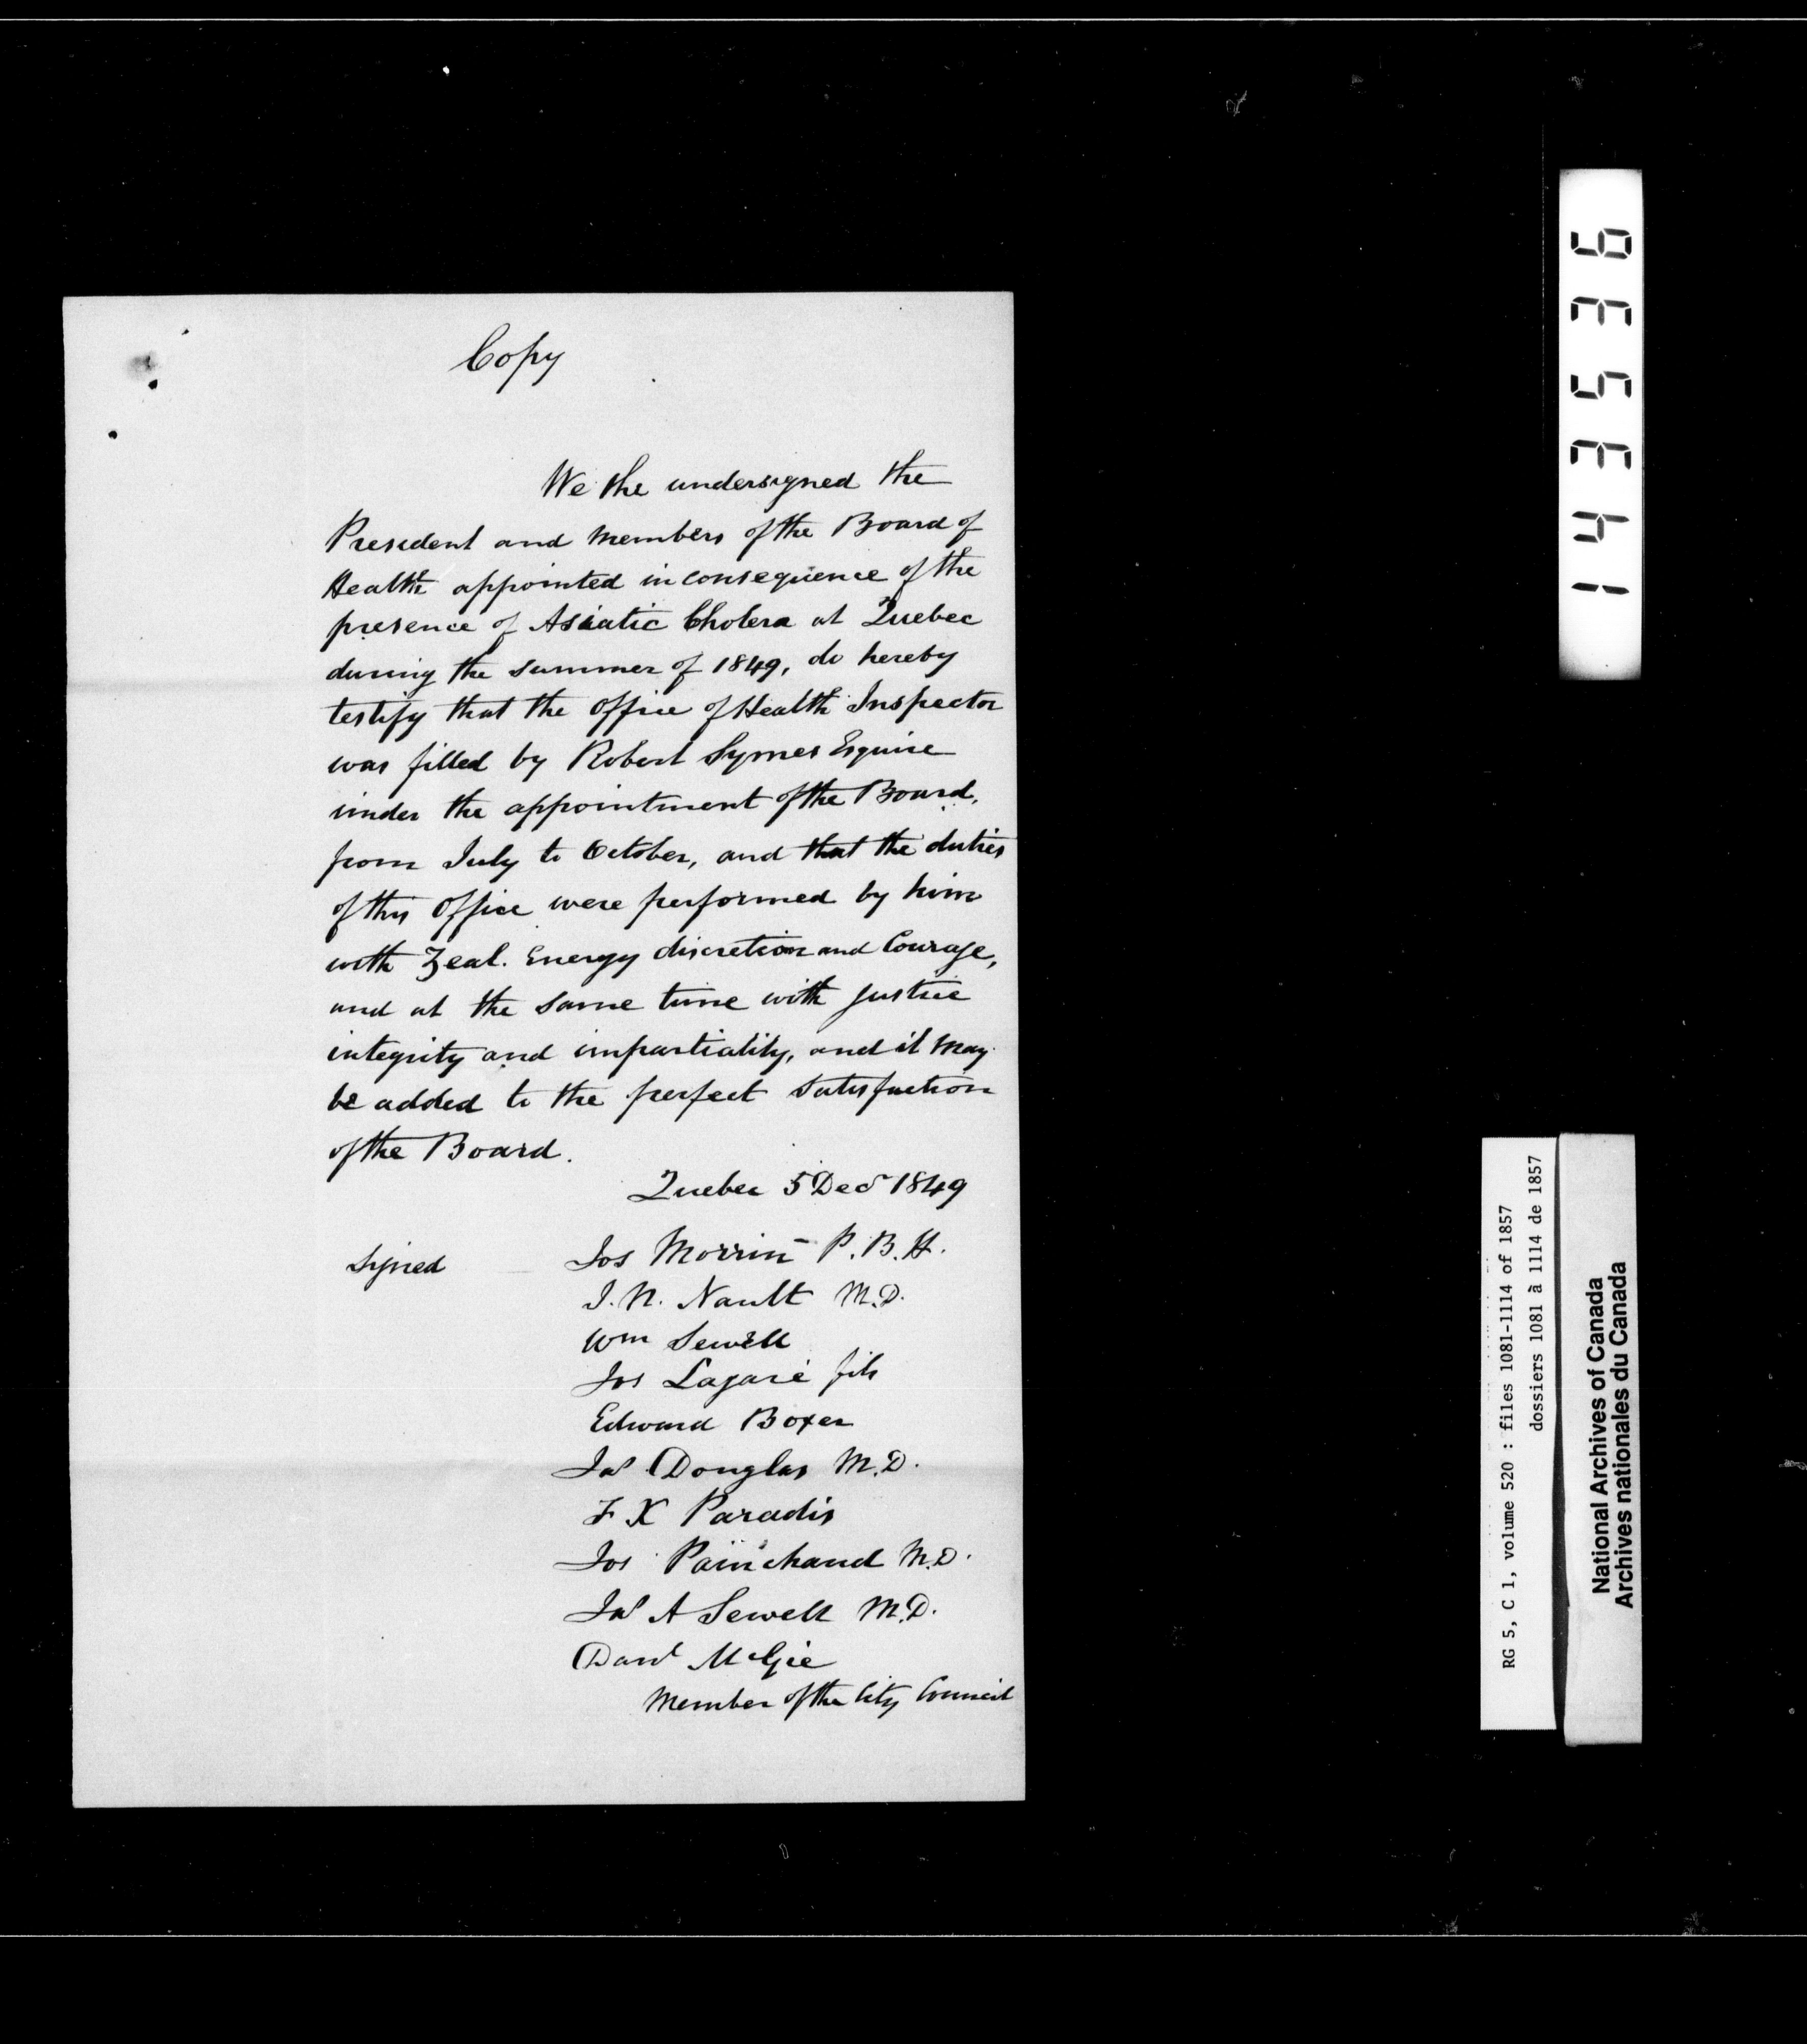 Copy
We the undersigned the
President and members of the Board of
Health appointed in consequence of the
presence of Asiatic Cholera at Quebec
during the summer of 1849, do hereby
testify that the Office of Health Inspector
was filled by Robert Symes Esquire
under the appointment of the Board,
from July to October, and that the duties
of this Office were performed by him
with Zeal. Energy discretion and Courage,
and at the same time with justice
integrity and impartiality, and it may
be added to the perfect satisfaction
of the Board.
Quebec 5 Decr 1849
signed Jos Morrin P. B. H.
J. N. Nault M.D.
Wm Sewell
Jos Legaré fils
Edward Boxer
Jas Douglas M.D.
F X Paradis
Jos Painchaud M.D.
Jas A Sewell M.D.
Danl McGie
Member of the City Council
143536
RG 5, C 1, volume 520 : files 1081-1114 of 1857
dossiers 1081 à 1114 de 1857
National Archives of Canada
Archives nationales du Canada